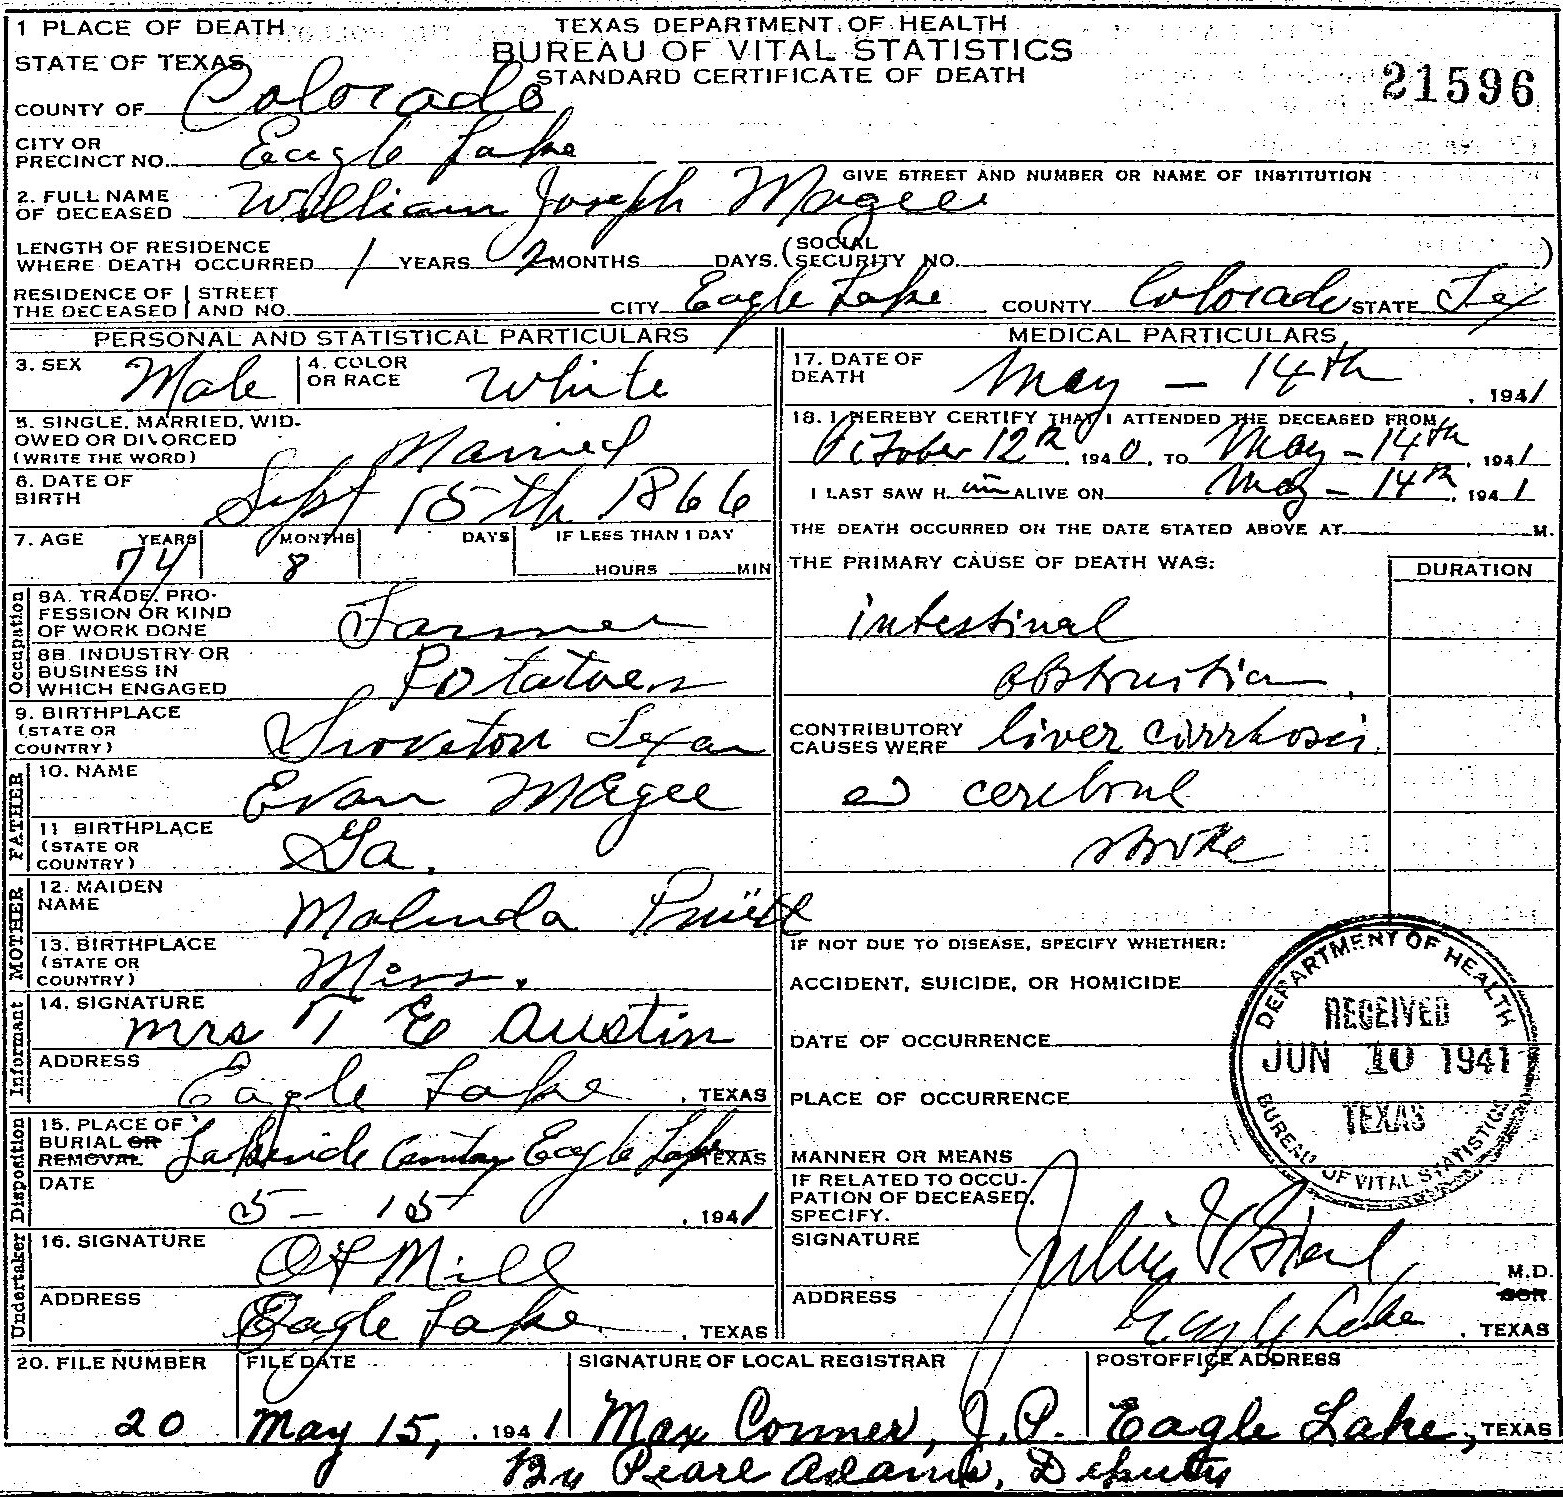 TEXAS DEPARTMENT OF HEALTH
BUREAU OF VITAL STATISTICS
STANDARD CERTIFICATE OF DEATH
21596
1 PLACE OF DEATH
STATE OF TEXAS
COUNTY OF Colorado
CITY OR PRECINCT NO. Eagle Lake
GIVE STREET AND NUMBER OR NAME OF INSTITUTION
2. FULL NAME OF DECEASED William Joseph Magee
LENGTH OF RESIDENCE WHERE DEATH OCCURRED 1 YEARS 2 MONTHS DAYS. (SOCIAL SECURITY NO. )
RESIDENCE OF THE DECEASED STREET AND NO. CITY Eagle Lake COUNTY Colorado STATE Tex
PERSONAL AND STATISTICAL PARTICULARS
3. SEX Male 4. COLOR OR RACE White
5. SINGLE, MARRIED, WIDOWED OR DIVORCED (WRITE THE WORD) Married
6. DATE OF BIRTH Sept 15th 1866
7. AGE YEARS 74 MONTHS 8 DAYS IF LESS THAN 1 DAY HOURS MIN
Occupation
8A. TRADE, PROFESSION OR KIND OF WORK DONE Farmer
8B. INDUSTRY OR BUSINESS IN WHICH ENGAGED Potatoes
9. BIRTHPLACE (STATE OR COUNTRY) Texas
FATHER
10. NAME Evan Magee
11 BIRTHPLACE (STATE OR COUNTRY) Ga.
MOTHER
12. MAIDEN NAME Malinda
13. BIRTHPLACE (STATE OR COUNTRY) Miss.
Informant
14. SIGNATURE mrs T E Austin
ADDRESS Eagle Lake, TEXAS
Disposition
15. PLACE OF BURIAL OR REMOVAL Lakeside Cemetery Eagle Lake TEXAS
DATE 5-15, 1941
Undertaker
16. SIGNATURE Mill
ADDRESS Eagle Lake, TEXAS
MEDICAL PARTICULARS
17. DATE OF DEATH May - 14th, 1941
18. I HEREBY CERTIFY THAT I ATTENDED THE DECEASED FROM
October 12th, 1940, TO May - 14th, 1941
I LAST SAW H im ALIVE ON May - 14th, 1941
THE DEATH OCCURRED ON THE DATE STATED ABOVE AT M.
THE PRIMARY CAUSE OF DEATH WAS: DURATION
intestinal
obstruction
CONTRIBUTORY CAUSES WERE liver cirrhosis
cerebral
stroke
IF NOT DUE TO DISEASE, SPECIFY WHETHER:
ACCIDENT, SUICIDE, OR HOMICIDE
DATE OF OCCURRENCE
PLACE OF OCCURRENCE
MANNER OR MEANS
IF RELATED TO OCCUPATION OF DECEASED, SPECIFY.
SIGNATURE M.D.
ADDRESS Eagle Lake, TEXAS
DEPARTMENT OF HEALTH
RECEIVED
JUN 10 1941
TEXAS
BUREAU OF VITAL STATISTICS
20. FILE NUMBER FILE DATE SIGNATURE OF LOCAL REGISTRAR POSTOFFICE ADDRESS
20 May 15, 1941 Max Conner, J.P. Eagle Lake, TEXAS
By Pearl Adams, Deputy